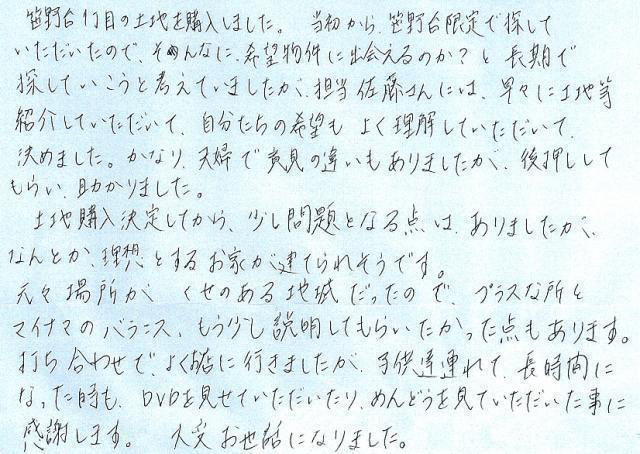 笹野台1丁目の土地を購入しました。 当初から、笹野台限定で探して
いただいたので、そんなに、希望物件に出会えるのか?と 長期で
探していこうと考えていましたが、担当 佐藤さんには、早々に土地等
紹介していただいて、自分たちの希望も よく理解していただいて、
決めました。かなり、夫婦で 意見の違いもありましたが、後押しして
もらい、助かりました。
土地購入決定してから、少し問題となる点は、ありましたが、
なんとか、理想とするお家が建てられそうです。
元々 場所が くせのある 地域だったので、プラスな所と
マイナスのバランス、もう少し説明してもらいたかった点もあります。
打ち合わせで、よくお店に行きましたが、子供達連れて、長時間に
なった時も、DVDを見せていただいたり、めんどうを見ていただいた事に
感謝します。 大変お世話になりました。